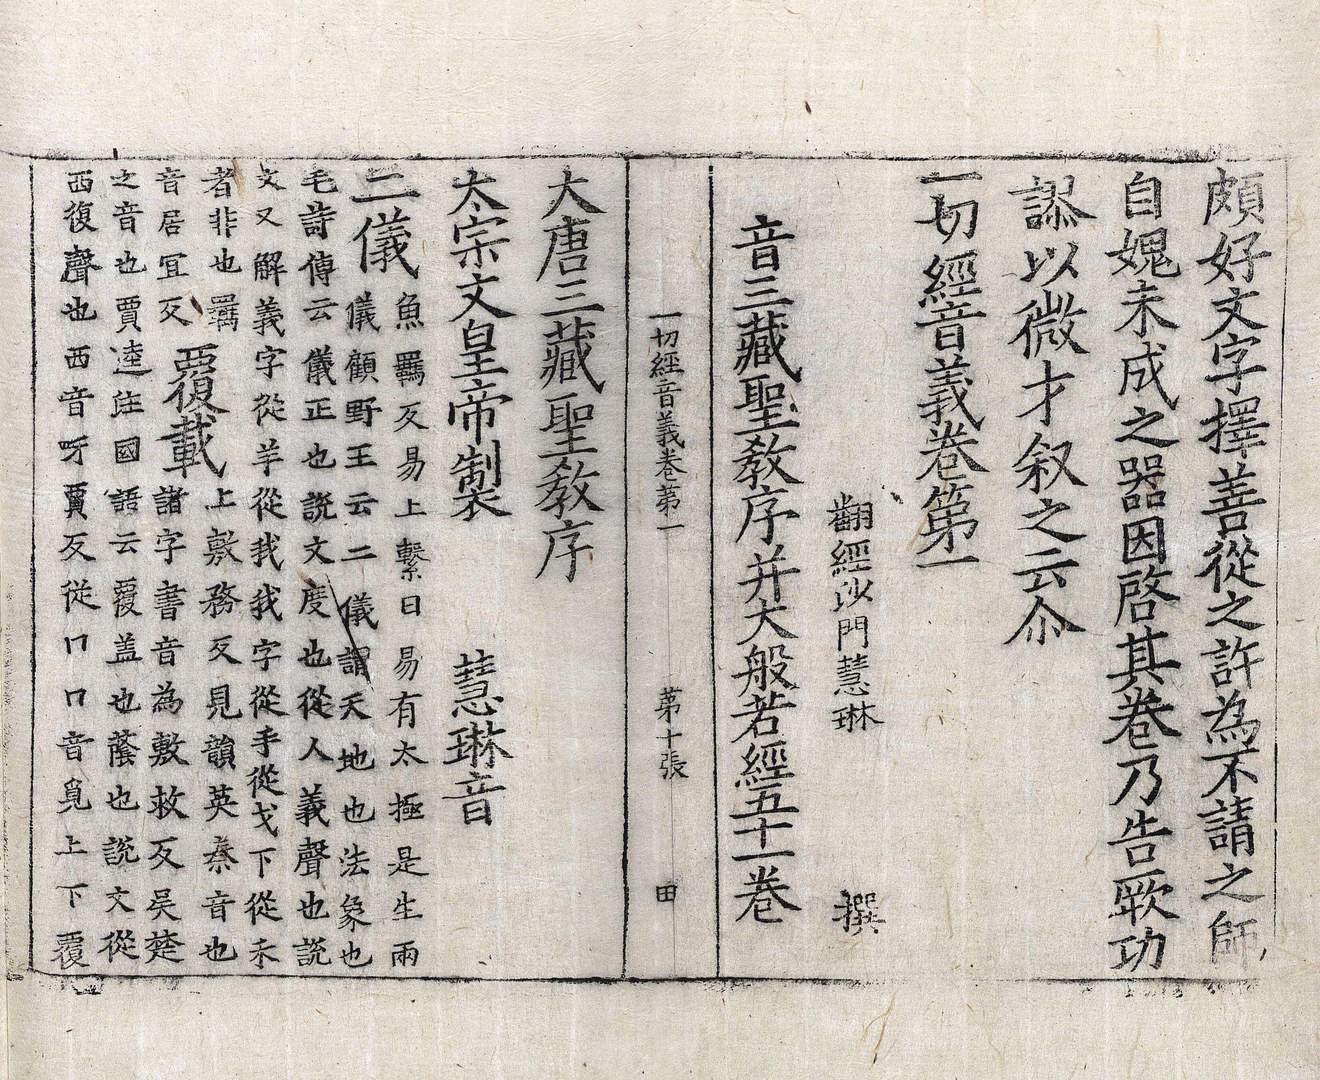 頗好文字擇善從之許為不請之師
自媿未成之器因啓其卷乃告厥功
謬以微才叙之云尒
一切經音義卷第一
翻經沙門慧琳 撰
音三藏聖教序并大般若經五十一卷
一切經音義卷第一 第十張 田
大唐三藏聖教序
太宗文皇帝製 慧琳音
二儀
魚羈反易上繫曰易有太極是生兩
儀顧野王云二儀謂天地也法象也
毛詩傳云儀正也說文度也從人義聲也說
文又解義字從羊從我我字從手從戈下從禾
者非也羈
音居冝反
覆載
上敷務反見韻英秦音也
諸字書音為敷救反吳楚
之音也賈逵註國語云覆盖也蔭也說文從
襾復聲也襾音呀賈反從冂冂音覓上下覆